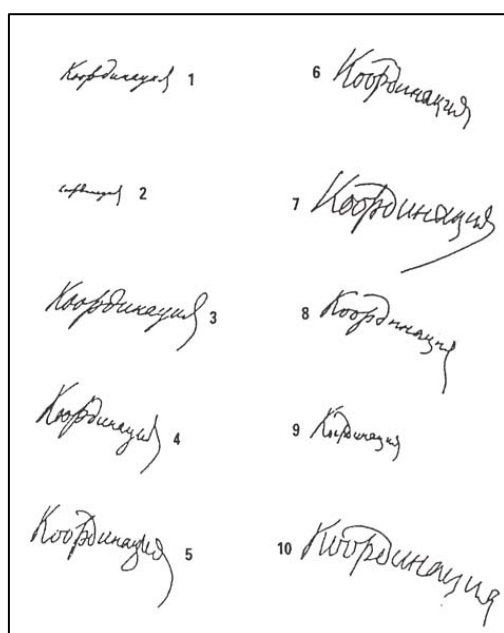 Координация 1
2
Координация 3
Координация 4
Координация 5
6 Координация
7 Координация
8 Координация
9 Координация
10 Координация